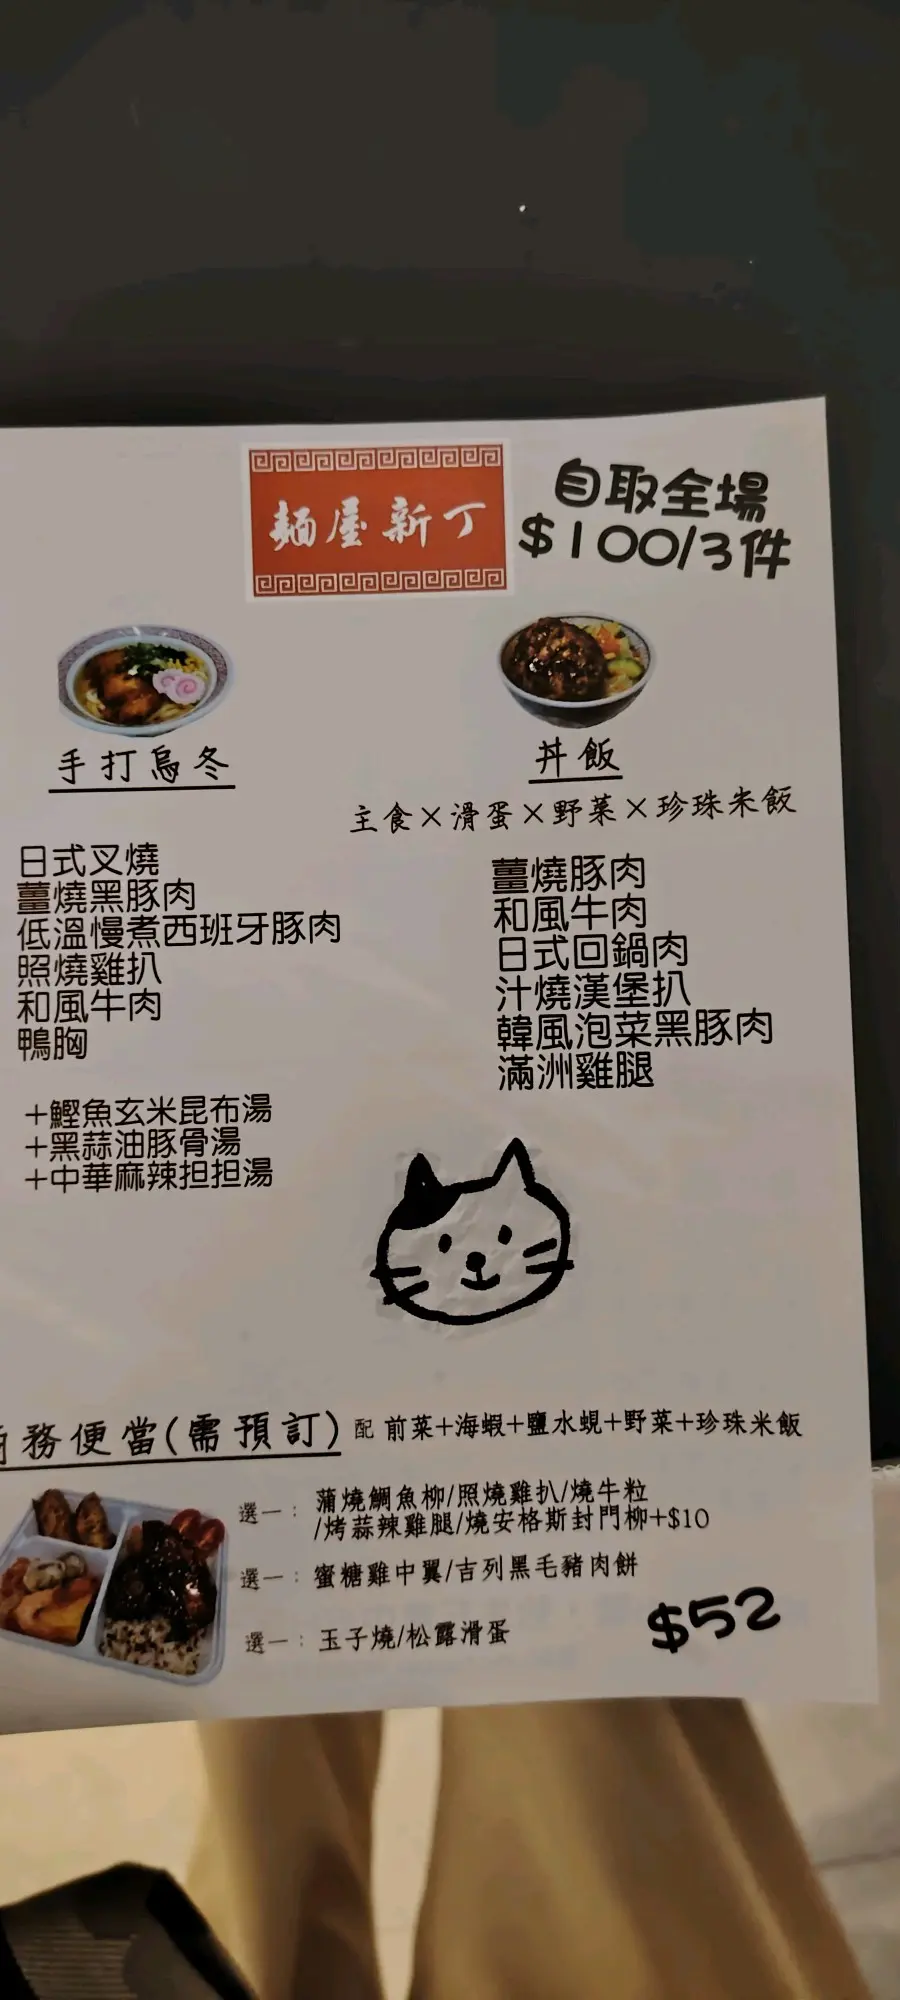 麵屋新丁
自取全場
$100/3件
手打烏冬
日式叉燒
薑燒黑豚肉
低溫慢煮西班牙豚肉
照燒雞扒
和風牛肉
鴨胸
+鰹魚玄米昆布湯
+黑蒜油豚骨湯
+中華麻辣担担湯
丼飯
主食×滑蛋×野菜×珍珠米飯
薑燒豚肉
和風牛肉
日式回鍋肉
汁燒漢堡扒
韓風泡菜黑豚肉
滿洲雞腿
務便當(需預訂) 配 前菜+海蝦+鹽水蜆+野菜+珍珠米飯
選一： 蒲燒鯛魚柳/照燒雞扒/燒牛粒
/烤蒜辣雞腿/燒安格斯封門柳+$10
選一： 蜜糖雞中翼/吉列黑毛豬肉餅
選一： 玉子燒/松露滑蛋
$52